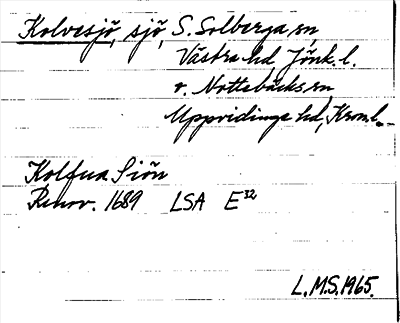 Kolvesjö, sjö, S. Solberga sn,
Västra hd Jönk. l.
v. Nottebäcks sn
Uppvidinge hd, Kron. l.
Kolfua Siön
Renov. 1689 LSA E32
L.M.S. 1965.